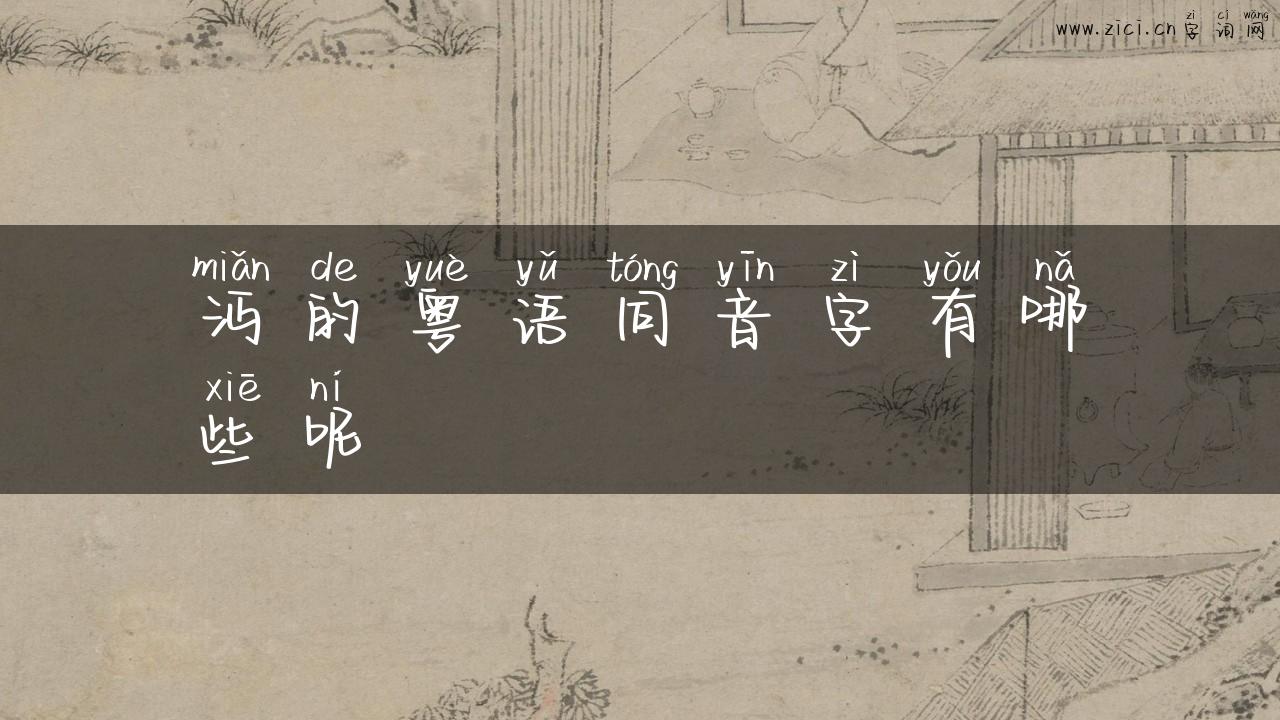 zì cí wǎng
www.zici.cn 字词网
miǎn de yuè yǔ tóng yīn zì yǒu nǎ
沔的粤语同音字有哪
xiē ní
些呢